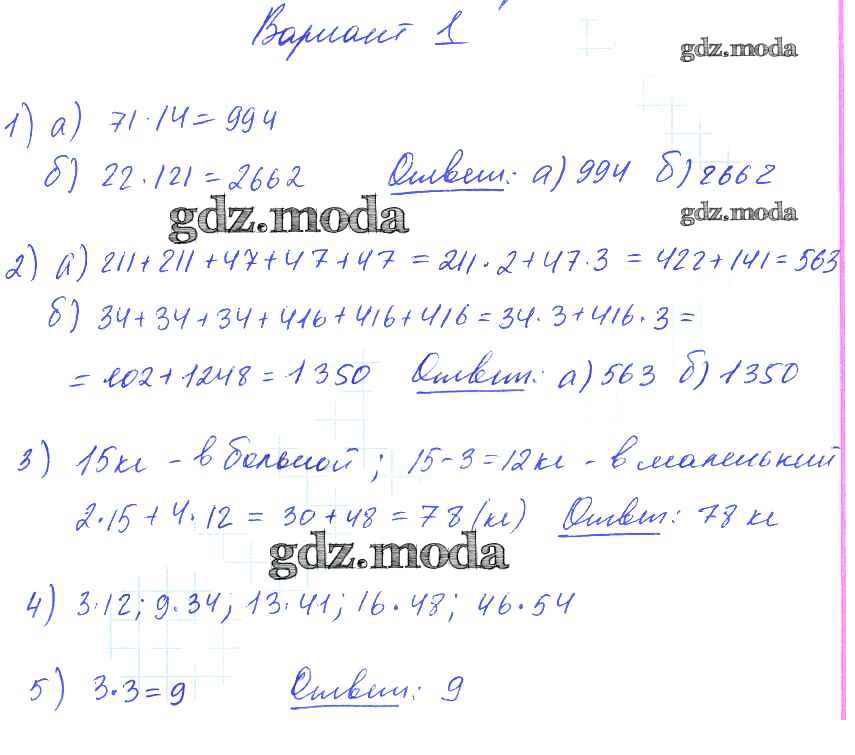 Вариант 1
gdz.moda
1) а) 71·14=994
б) 22·121=2662 Ответ: а) 994 б) 2662
gdz.moda
gdz.moda
2) а) 211+211+47+47+47=211·2+47·3=422+141=563
б) 34+34+34+416+416+416=34·3+416·3=
=102+1248=1350 Ответ: а) 563 б) 1350
3) 15кг - в большой; 15-3=12кг - в маленький
2·15+4·12=30+48=78(кг) Ответ: 78 кг
gdz.moda
4) 3·12; 9·34; 13·41; 16·48; 46·54
5) 3·3=9 Ответ: 9